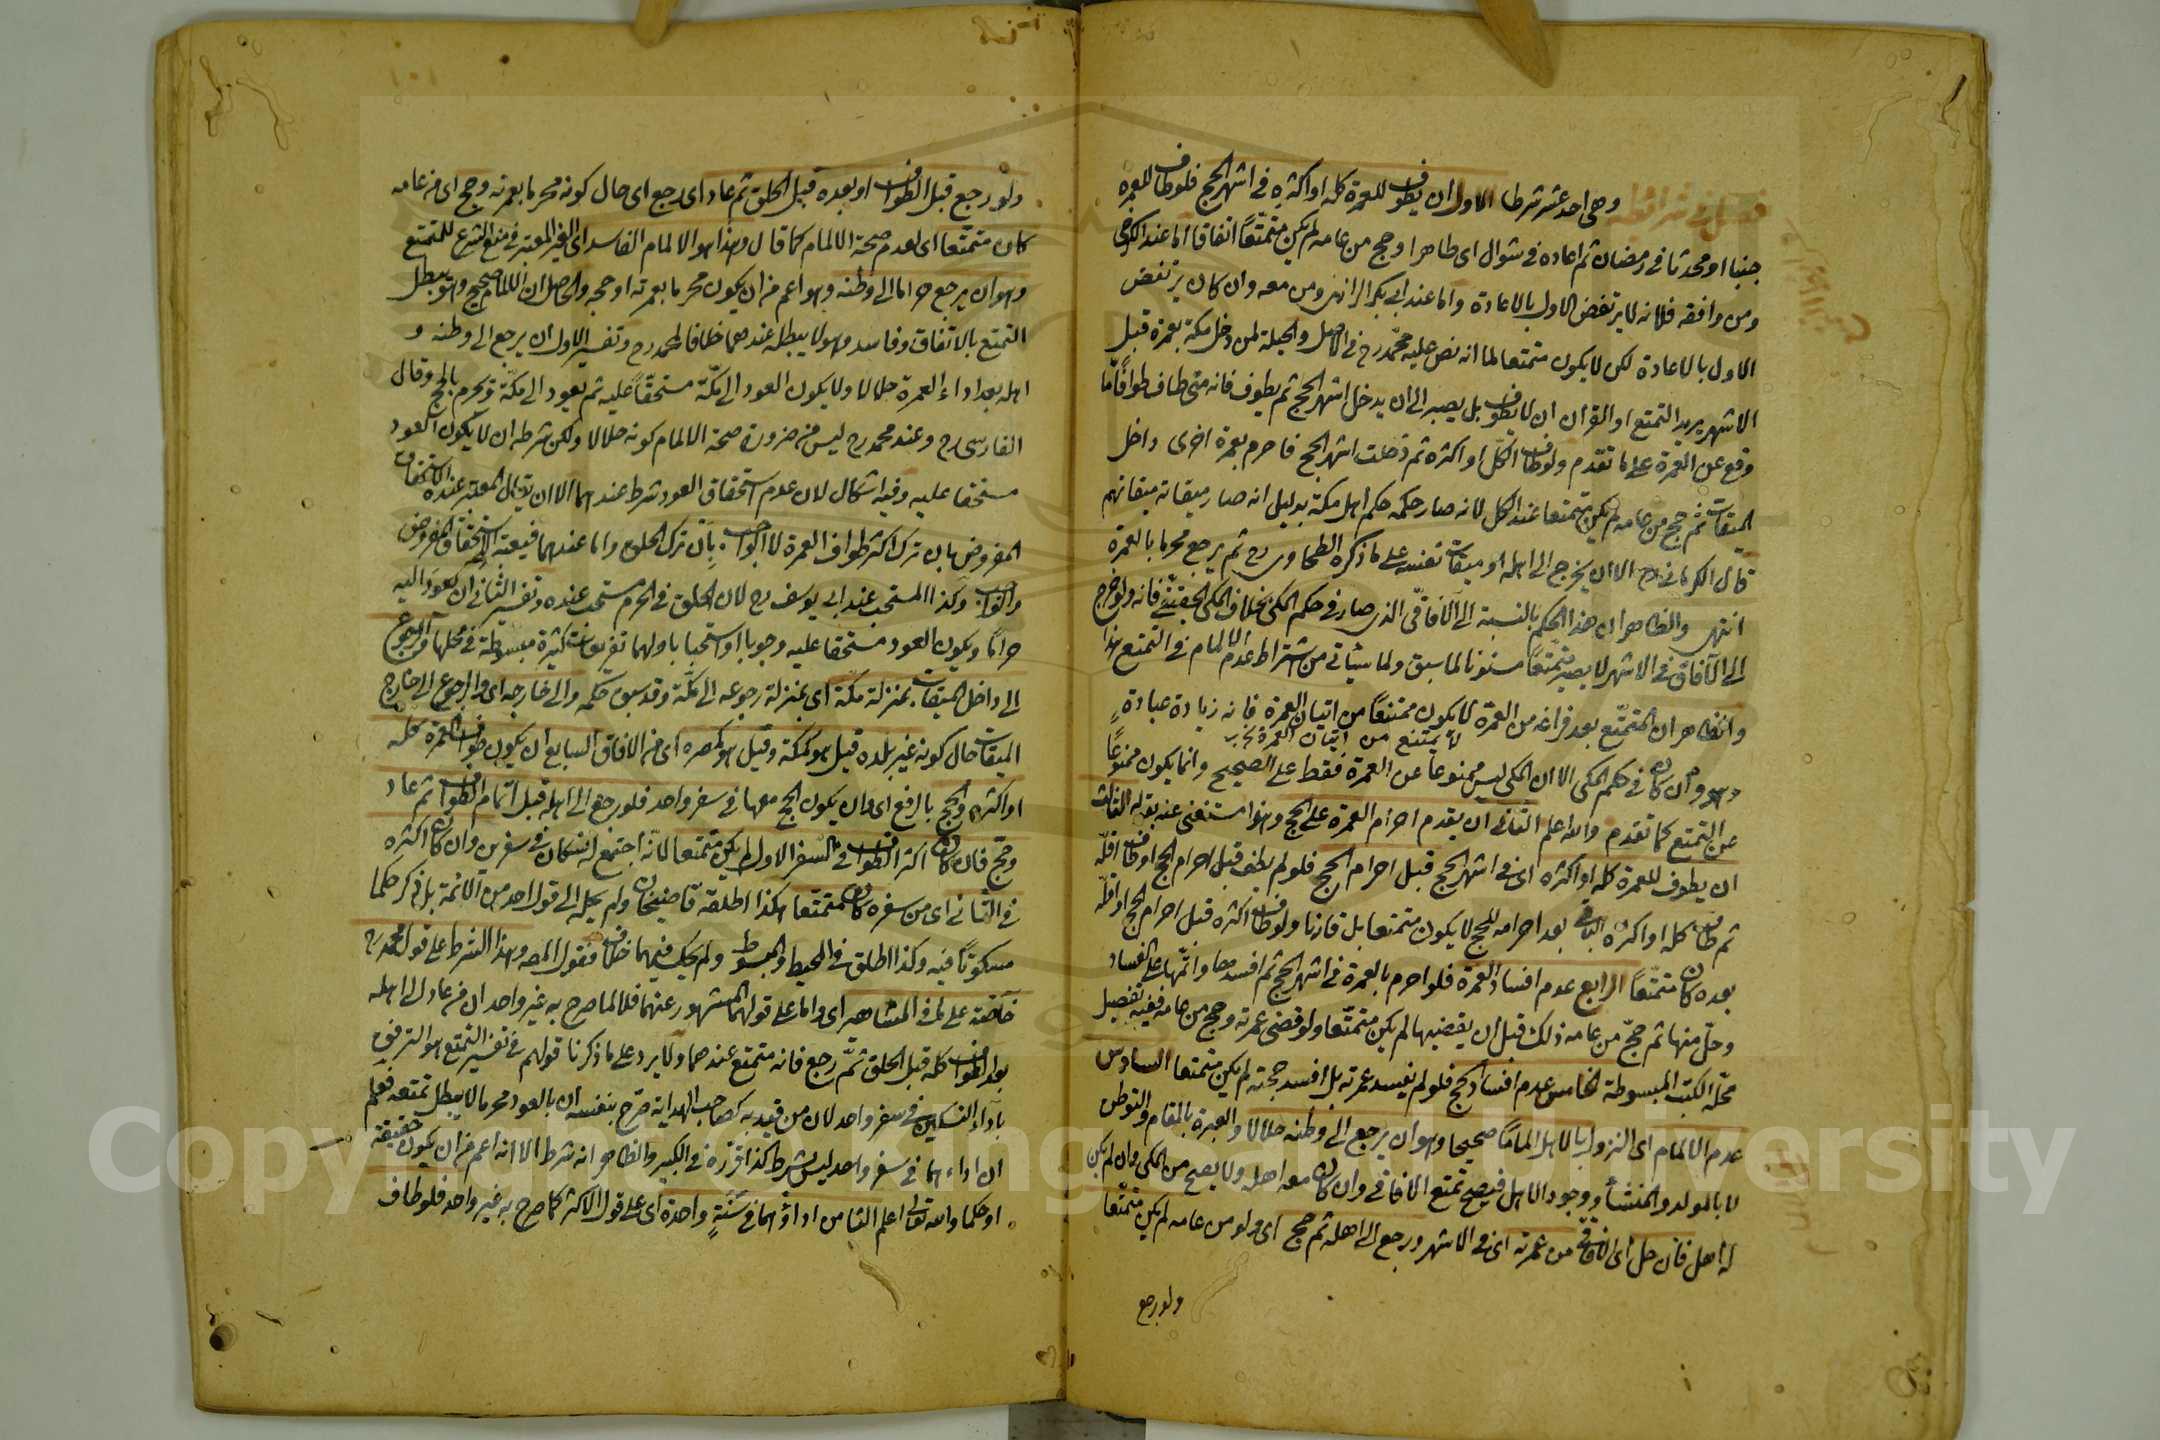 فصل في شرائطه وهي احد عشر شرطا الاول ان يطوف للعمرة كله او اكثره في اشهر الحج فلو طاف للعمرة
جنبا او محدثا في رمضان ثم اعاده في شوال اي طاهرا وحج من عامه لم يكن متمتعا اتفاقا اما عند الكرخي
ومن وافقه فلانه لا يرتفض الاول بالاعادة واما عند ابي بكر الرازي ومن معه وان كان يرتفض
الاول بالاعادة لكن لا يكون متمتعا لما انه نص عليه محمد رح في الاصل والحيلة لمن دخل مكة بعمرة قبل
الاشهر يريد التمتع او القران ان لا يطوف بل يصبر الى ان يدخل اشهر الحج ثم يطوف فانه متى طاف طوافا ما
وقع عن العمرة على ما تقدم ولو طاف الكل او اكثره ثم دخلت اشهر الحج فاحرم بعمرة اخرى داخل
الميقات ثم حج من عامه لم يكن متمتعا عند الكل لانه صار حكمه حكم اهل مكة بدليل انه صار ميقاته ميقاتهم
قال الكرماني رح الا ان يخرج الى اهله او ميقات نفسه على ما ذكره الطحاوي رح ثم يرجع محرما بالعمرة
انتهى والظاهر ان هذا الحكم بالنسبة الى الآفاقي الذي صار في حكم المكي بخلاف المكي الحقيقي فانه ولو خرج
الى الآفاق في الاشهر لا يصير متمتعا مسنونا لما سبق ولما سيأتي من اشتراط عدم الالمام في التمتع هذا
والظاهر ان المتمتع بعد فراغه من العمرة لا يكون ممتنعا من اتيان العمرة فانه زيادة عبادة
لا يمتنع من اتيان العمرة
وهو وان كان في حكم المكي الا ان المكي ليس ممنوعا عن العمرة فقط على الصحيح وانما يكون ممنوعا
عن التمتع كما تقدم والله اعلم الثاني ان يقدم احرام العمرة على الحج وهذا مستغنى عنه بقوله الثالث
ان يطوف للعمرة كله او اكثره اي في اشهر الحج قبل احرام الحج فلو لم يطف قبل احرام الحج او طاف اقله
ثم طاف كله او اكثره الباقي بعد احرامه للحج لا يكون متمتعا بل قارنا ولو طاف اكثره قبل احرام الحج او اقله
بعده كان متمتعا الرابع عدم افساد العمرة فلو احرم بالعمرة في اشهر الحج ثم افسدها واتمها على الفساد
وحل منها ثم حج من عامه ذلك قبل ان يقضيها لم يكن متمتعا ولو قضى عمرته وحج من عامه ففيه تفصيل
محله الكتب المبسوطة الخامس عدم افساد الحج فلو لم يفسد عمرته بل افسد حجته لم يكن متمتعا السادس
عدم الالمام اي النزول بالاهل الماما صحيحا وهو ان يرجع الى وطنه حلالا والعبرة بالمقام والتوطن
لا بالمولد والمنشأ ووجود الاهل فيصح تمتع الافاقي وان كان معه اهله ولا يصح من المكي وان لم يكن
له اهل فان حل اي الآفاقي من عمرته اي في الاشهر ورجع الى اهله ثم حج اي ولو من عامه لم يكن متمتعا
ولو رجع
ولو رجع قبل الطواف او بعده قبل الحلق ثم عاد اي رجع اي حال كونه محرما بعمرته وحج اي من عامه
كان متمتعا اي لعدم صحة الالمام كما قال وهذا هو الالمام الفاسد اي الغير المعتبر في منع الشرع للتمتع
وهو ان يرجع حراما الى وطنه وهو اعم من ان يكون محرما بعمرته او حجه والحاصل ان الالمام صحيح وهو يبطل
التمتع بالاتفاق وفاسد وهو لا يبطله عندهما خلافا لمحمد رح وتفسير الاول ان يرجع الى وطنه و
اهله بعد اداء العمرة حلالا ولا يكون العود الى مكة مستحقا عليه ثم يعود الى مكة ويحرم بالحج وقال
الفارسي رح وعند محمد رح ليس من ضرورة صحة الالمام كونه حلالا ولكن شرطه ان لا يكون العود
مستحقا عليه وفيه اشكال لان عدم استحقاق العود شرط عندهما الا ان يقال المعتبر عنده الاستحقاق
المفروض بان ترك اكثر طواف العمرة لا الواجب بان ترك الحلق واما عندهما فيعتبر الاستحقاق المفروض
والواجب وكذا المستحب عند ابي يوسف رح لان الحلق في الحرم مستحب عنده وتفسير الثاني ان يعود اليه
حراما ويكون العود مستحقا عليه وجوبا او استحبابا ولهما تفريعات كثيرة مبسوطة في محلها والرجوع
الى داخل الميقات بمنزلة مكة اي بمنزلة رجوعه الى مكة وقد سبق حكمه والى خارجه اي والرجوع الى خارج
الميقات حال كونه غير بلده قيل هو كمكة وقيل هو كمصره اي من الافاق السابع ان يكون طواف العمرة كله
او اكثره والحج بالرفع اي وان يكون الحج معها في سفر واحد فلو رجع الى اهله قبل اتمام الطواف ثم عاد
وحج فان كان اكثر الطواف في السفر الاول لم يكن متمتعا لانه اجتمع له نسكان في سفرين وان كان اكثره
في الثاني اي من سفره كان متمتعا هكذا اطلقه قاضيخان ولم يحله الى قول احد من الائمة بل ذكر حكما
مسكوتا فيه وكذا اطلق في المحيط والمبسوط ولم يحك فيهما خلاف فقول المص وهذا الشرط على قول محمد رح
خاصة على ما في المشاهير اي واما على قولهما المشهور عنهما فلا لما صرح به غير واحد ان من عاد الى اهله
بعد الطواف كله قبل الحلق ثم رجع فانه متمتع عندهما ولا يرد على ما ذكرنا قولهم في تفسير التمتع هو الترفق
باداء النسكين في سفر واحد لان من قيد به كصاحب الهداية صرح بنفسه ان بالعود محرما لا يبطل تمتعه فعلم
ان اداءهما في سفر واحد ليس بشرط كذا قرره في الكبير والظاهر انه شرط الا انه اعم من ان يكون حقيقة
او حكما والله تعالى اعلم الثامن اداؤهما في سنة واحدة اي على قول الاكثر كما صرح به غير واحد فلو طاف
Copyright © King Saud University